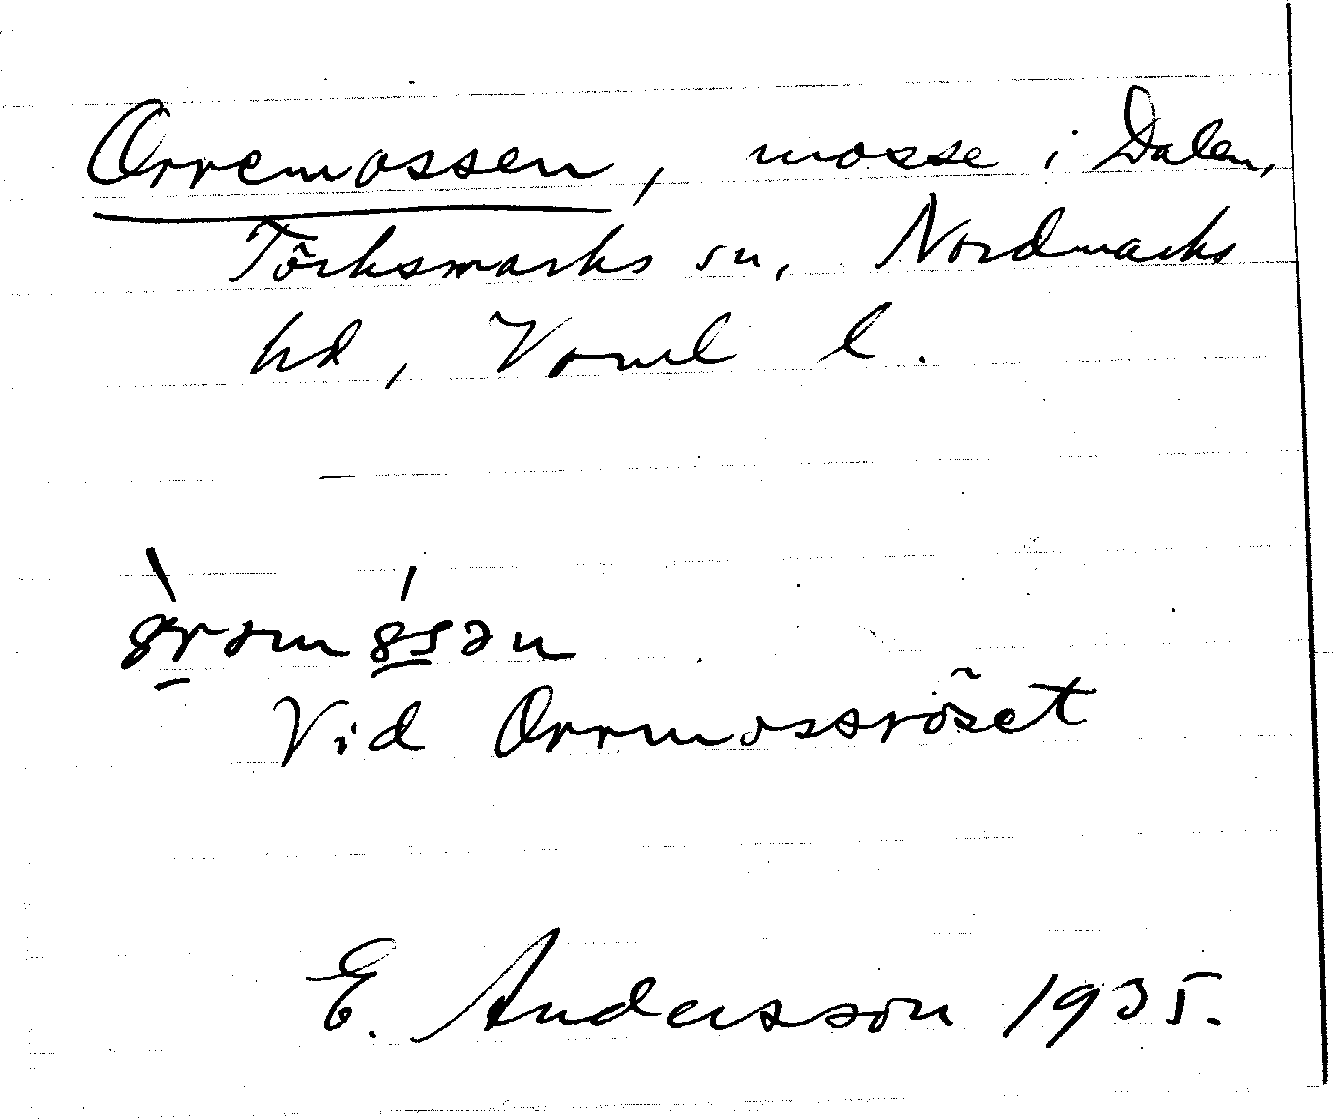 Orremossen, mosse i Dalen,
Törksmarks sn, Nordmarks
hd, Vrml l.
Vid Orrmossröset
E. Andersson 1935.